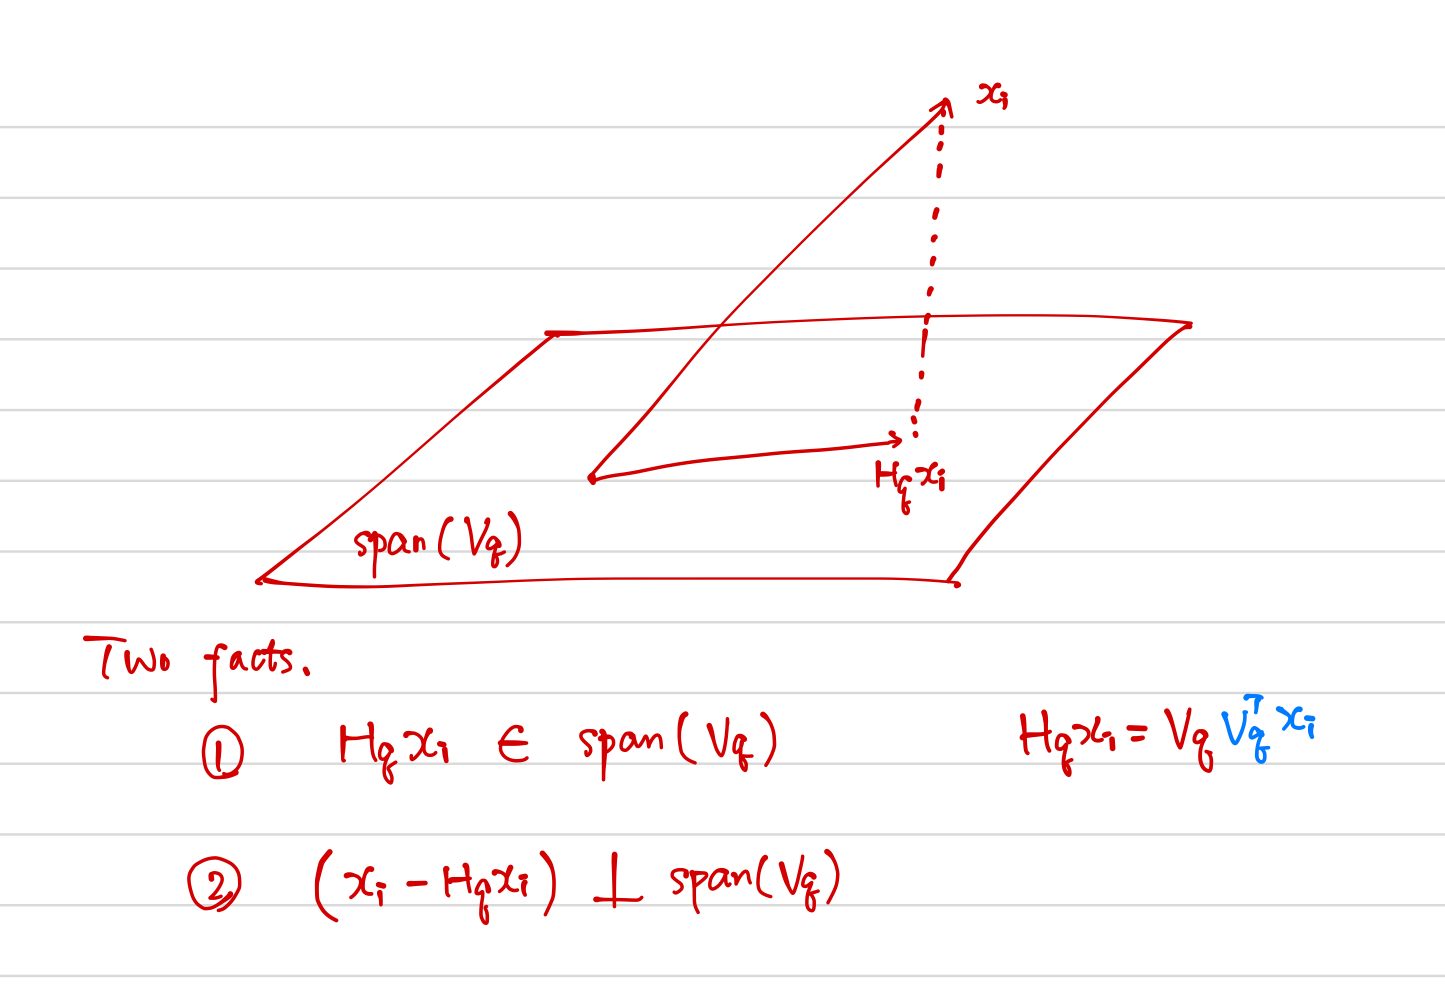 xᵢ
H_q xᵢ
span(V_q)
Two facts.
① H_q xᵢ ∈ span(V_q) H_q xᵢ = V_q V_qᵀ xᵢ
② (xᵢ - H_q xᵢ) ⊥ span(V_q)